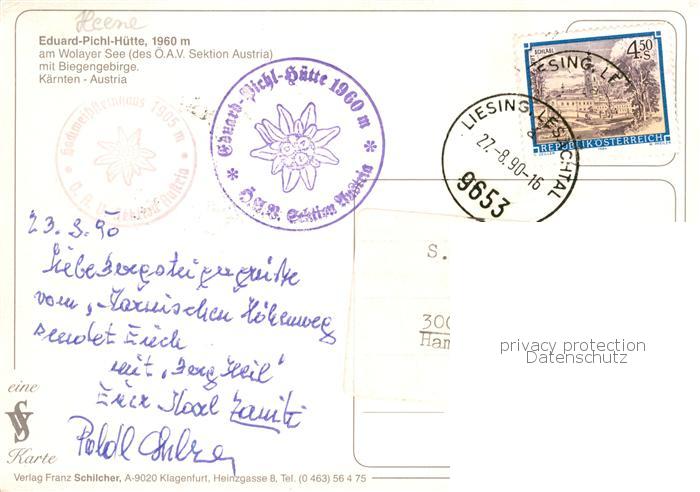 Heene
Eduard-Pichl-Hütte, 1960 m
am Wolayer See (des Ö.A.V. Sektion Austria)
mit Biegengebirge.
Kärnten - Austria
Hochweißsteinhaus 1905 m
Eduard-Pichl-Hütte 1960 m
Ö.A.V. Sektion Austria
STIFT SCHLÄGL
4.50 S
REPUBLIK ÖSTERREICH
LIESING, LESACHTAL
27.-8.90-16
9653
LIESING, LE
23.8.90
Liebe Bergsteigergrüße
vom „Karnischen Höhenweg
sendet Euch
mit „Berg Heil"
Euer
S.
300
Ham
privacy protection
Datenschutz
eine
Karte
Verlag Franz Schilcher, A-9020 Klagenfurt, Heinzgasse 8, Tel. (0 463) 56 4 75